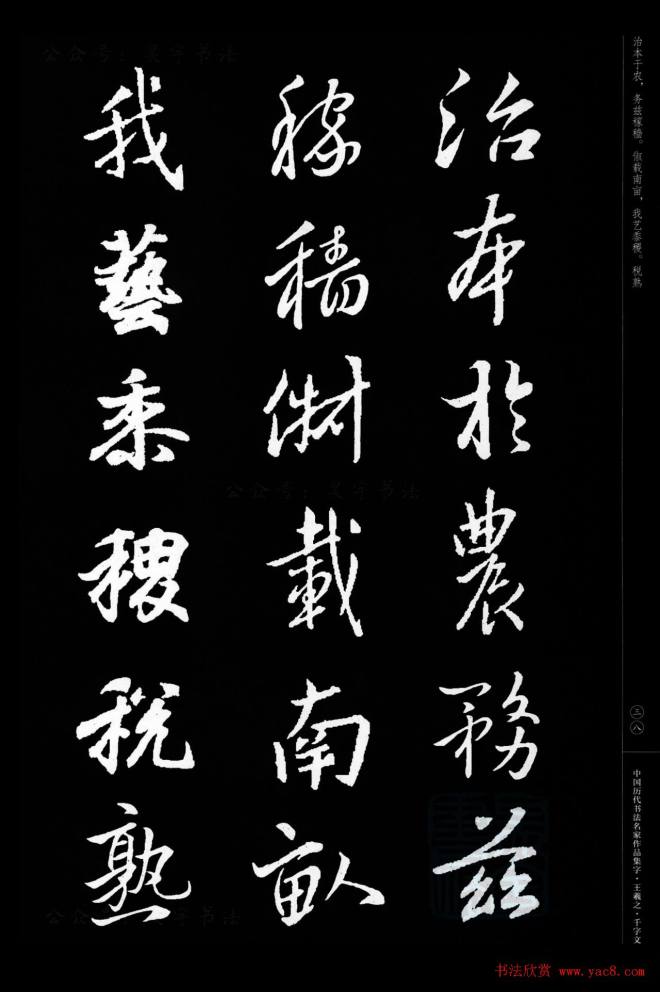 治本於農務茲
稼穡俶載南畝
我藝黍稷稅熟
治本于农，务兹稼穑。俶载南亩，我艺黍稷。税熟
三八
中国历代书法名家作品集字·王羲之·千字文
公众号：昊宇书法
公众号：昊宇书法
公众号：昊宇书法
书法欣赏 www.yac8.com